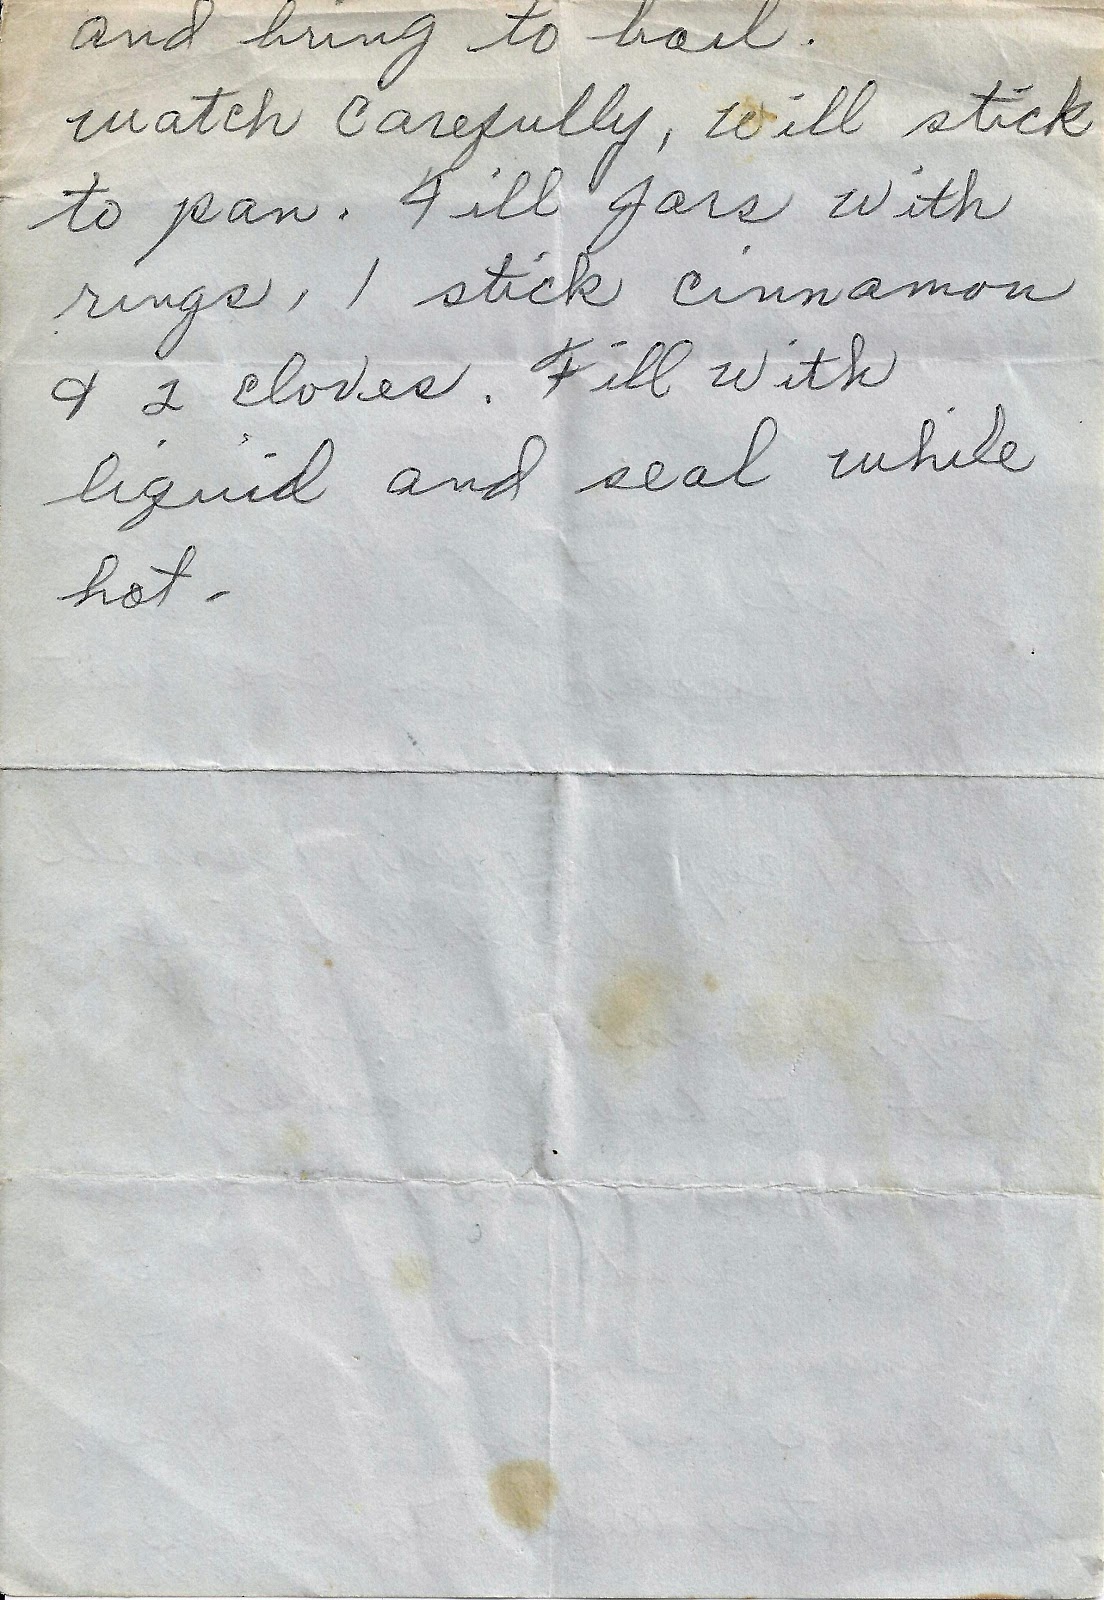 and bring to boil.
watch carefully, will stick
to pan. Fill jars with
rings, 1 stick cinnamon
& 2 cloves. Fill with
liquid and seal while
hot.